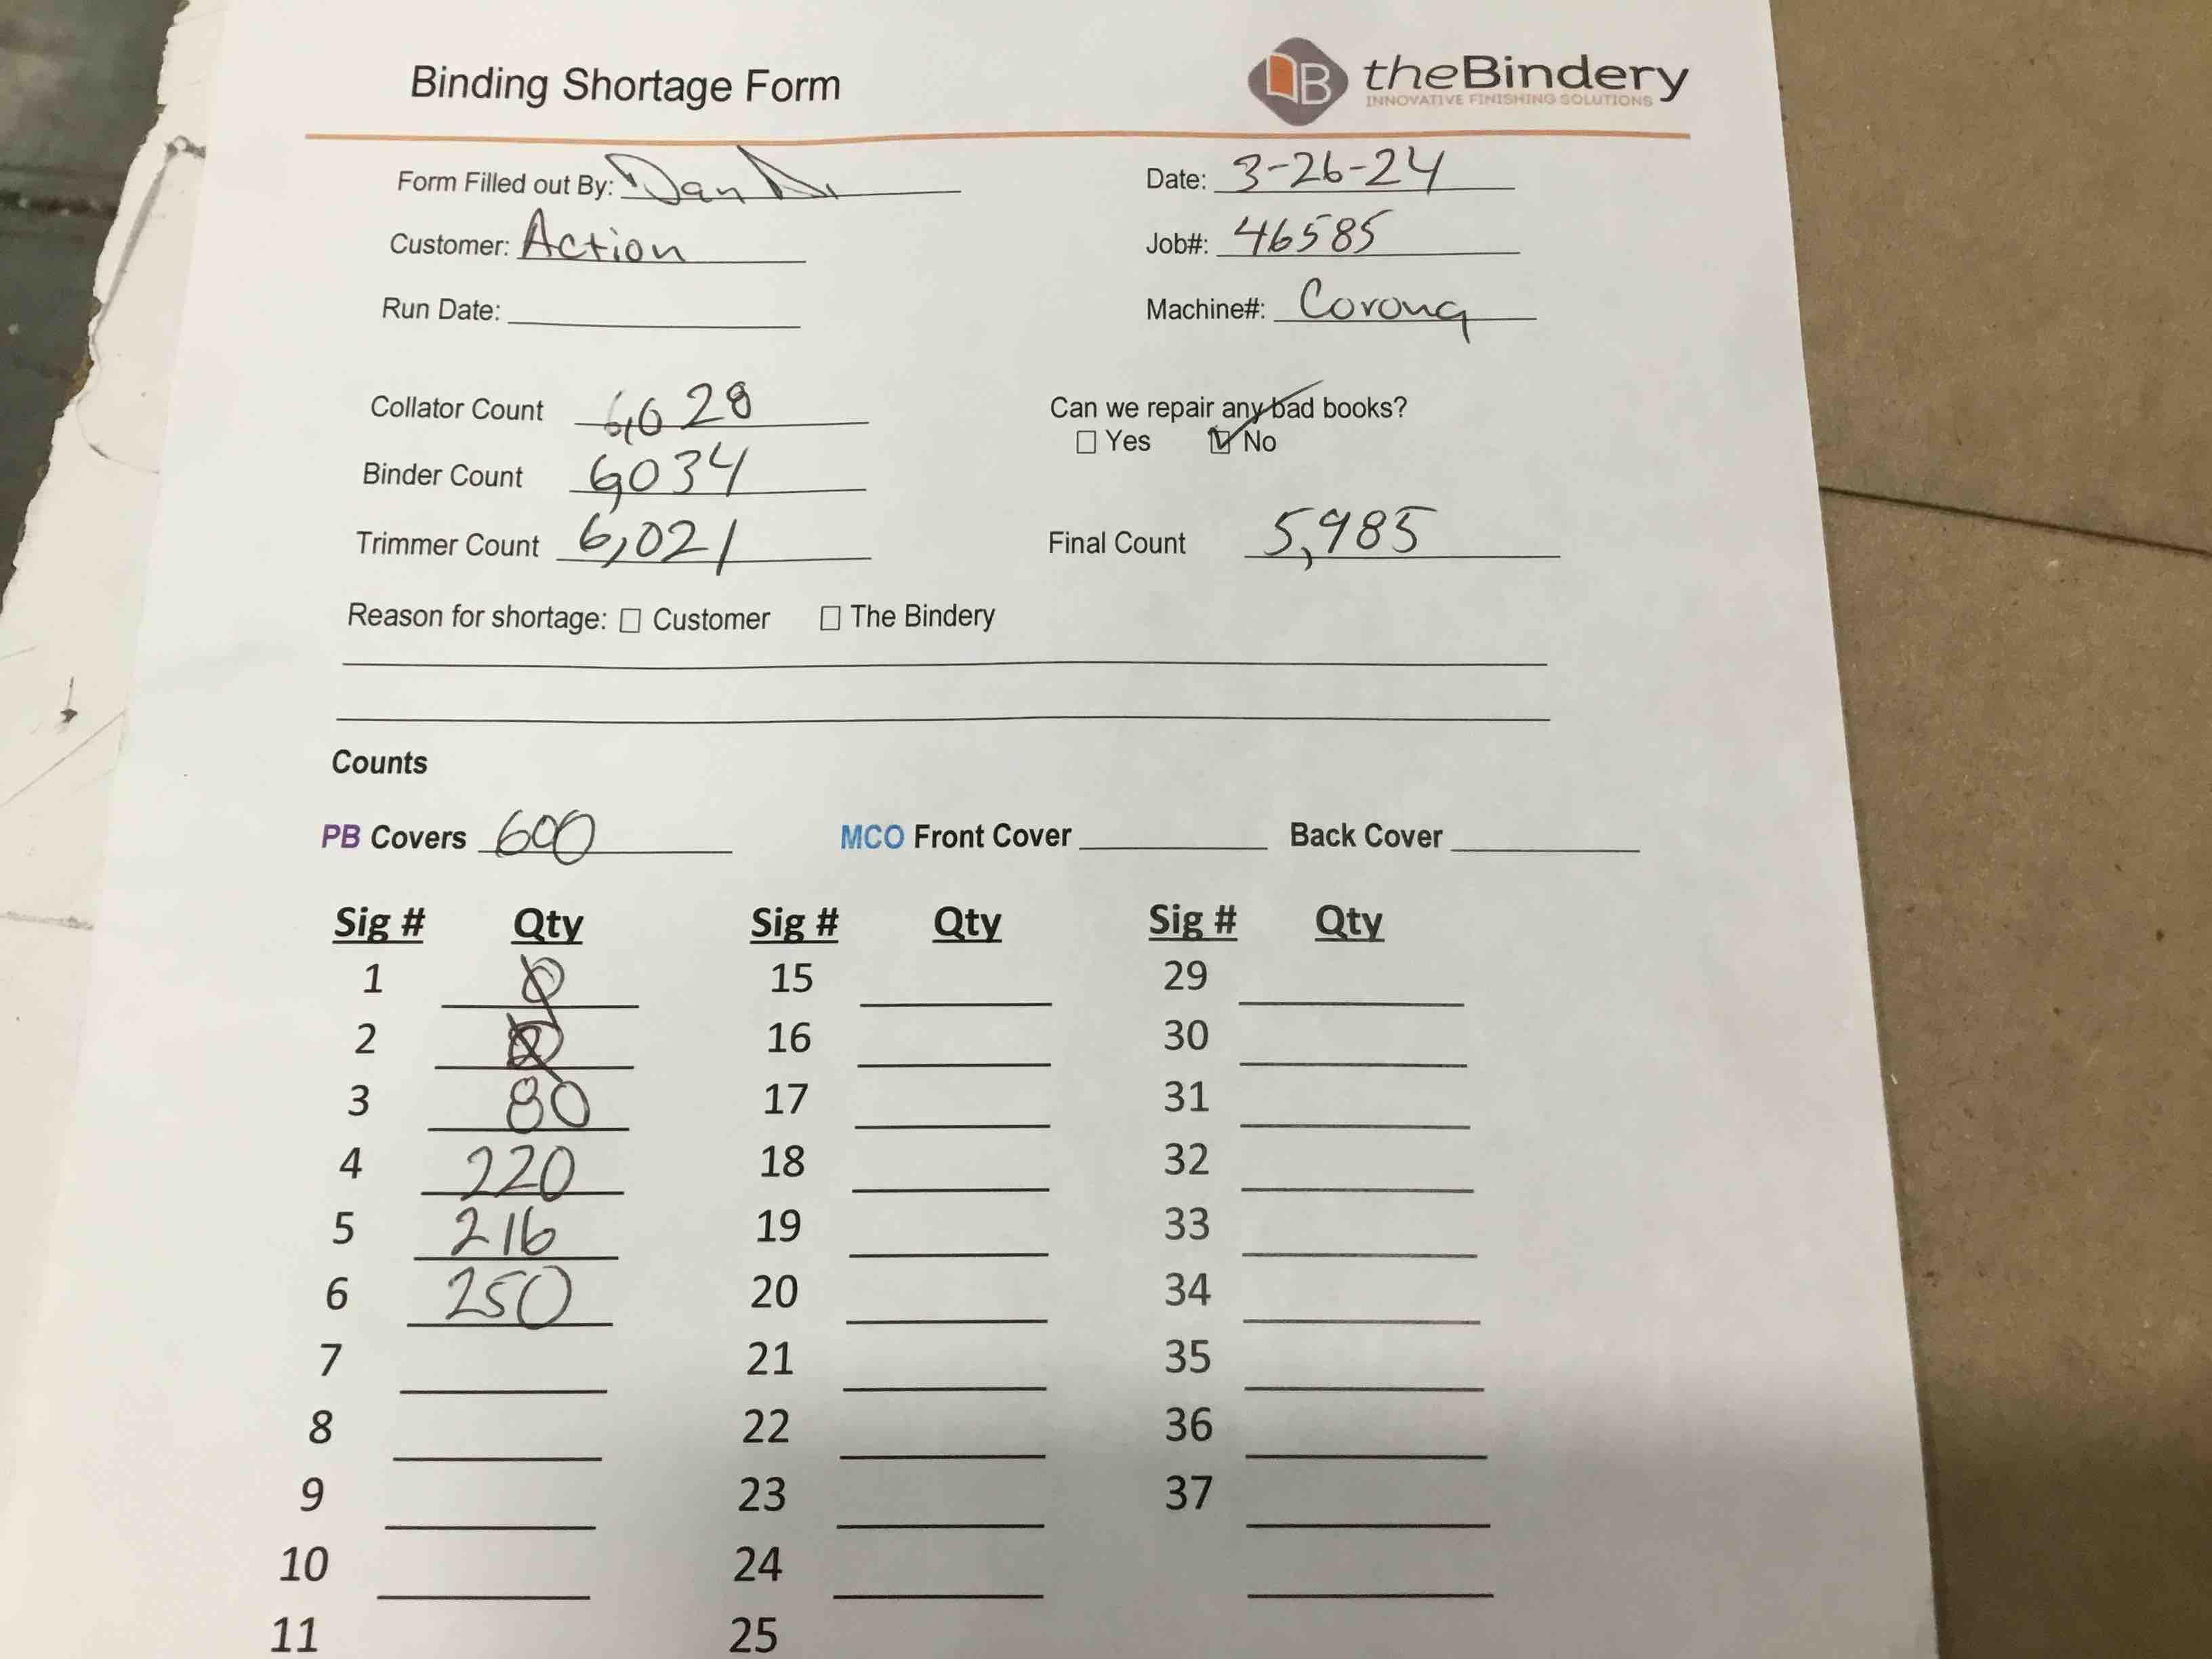 Binding Shortage Form
B theBindery
INNOVATIVE FINISHING SOLUTIONS
Form Filled out By: Dan
Date: 3-26-24
Customer: Action
Job#: 46585
Run Date:
Machine#: Corona
Collator Count 6,028
Can we repair any bad books?
☐ Yes ☑ No
Binder Count 6034
Trimmer Count 6,021
Final Count 5,985
Reason for shortage: ☐ Customer ☐ The Bindery
Counts
PB Covers 600
MCO Front Cover
Back Cover
Sig # Qty Sig # Qty Sig # Qty
1 0 15 29
2 16 30
3 80 17 31
4 220 18 32
5 216 19 33
6 250 20 34
7 21 35
8 22 36
9 23 37
10 24
11 25